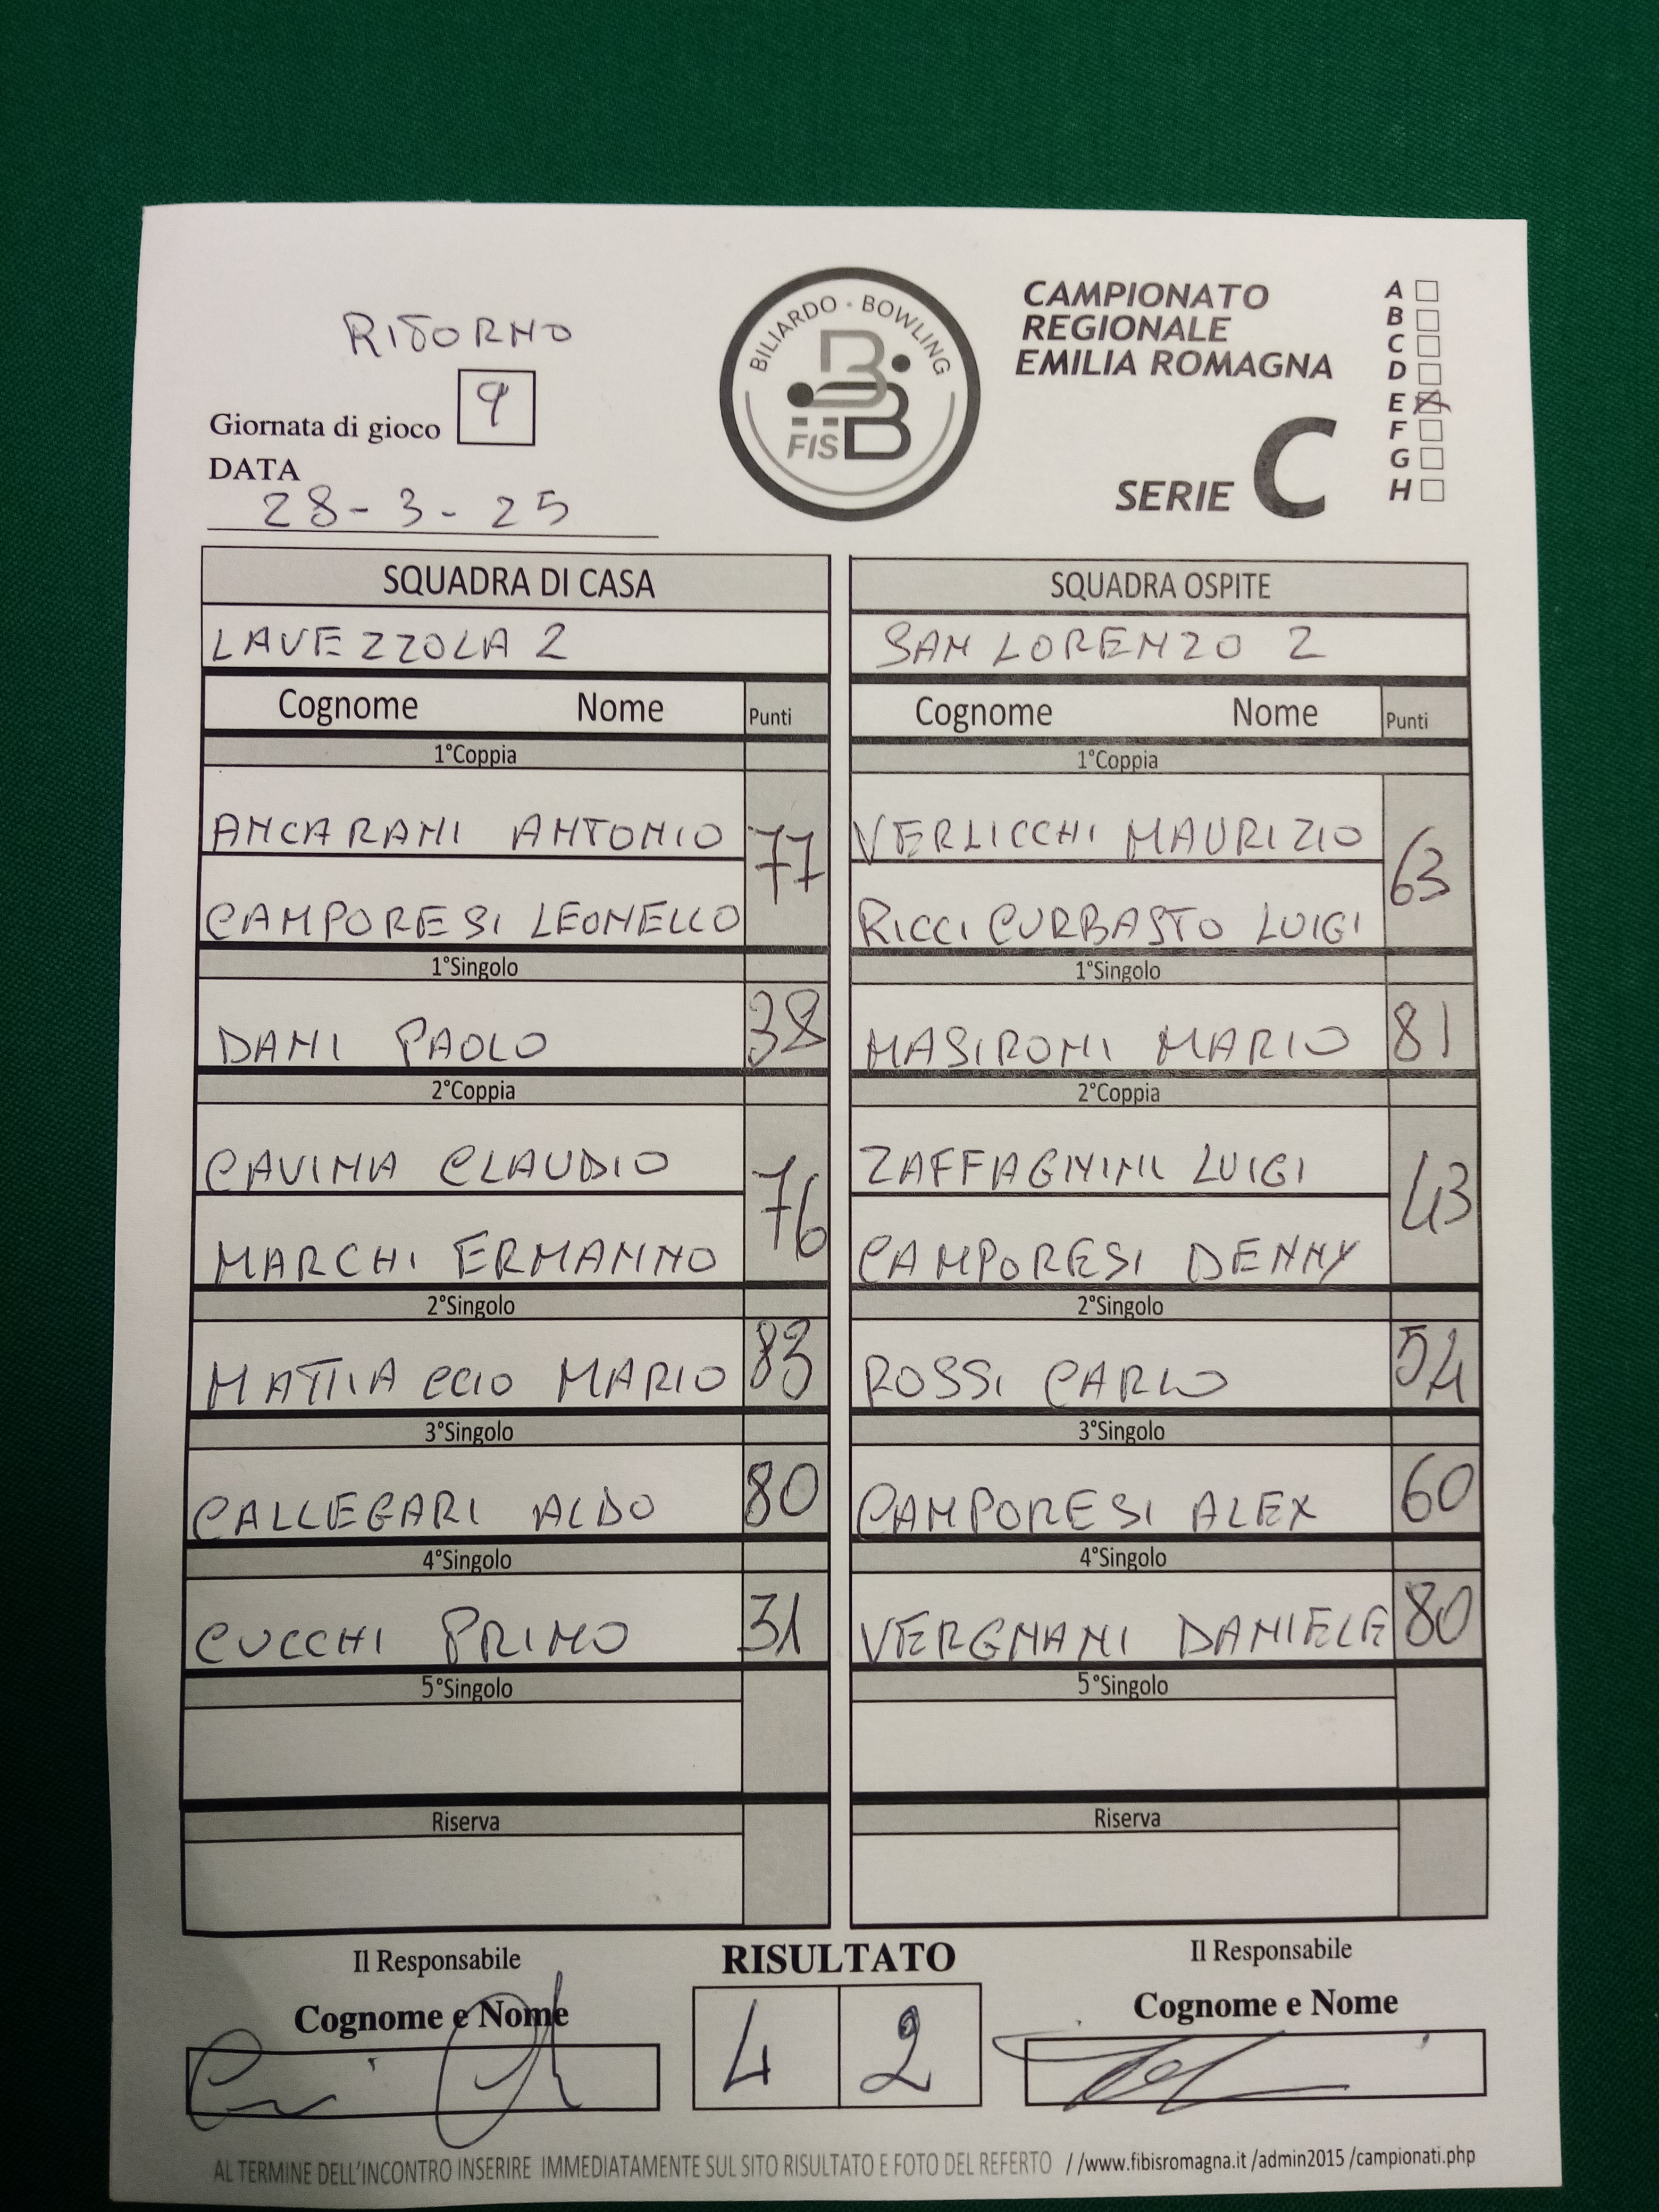 RITORNO
Giornata di gioco 9
DATA
28-3-25
BILIARDO - BOWLING
FISBB
CAMPIONATO
REGIONALE
EMILIA ROMAGNA
SERIE C
A
B
C
D
E X
F
G
H
SQUADRA DI CASA
LAVEZZOLA 2
Cognome Nome Punti
1°Coppia
ANCARANI ANTONIO 77
CAMPORESI LEONELLO
1°Singolo
DANI PAOLO 38
2°Coppia
CAVINA CLAUDIO 76
MARCHI ERMANNO
2°Singolo
MATTIACCIO MARIO 83
3°Singolo
CALLEGARI ALDO 80
4°Singolo
CUCCHI PRIMO 31
5°Singolo
Riserva
SQUADRA OSPITE
SAN LORENZO 2
Cognome Nome Punti
1°Coppia
VERLICCHI MAURIZIO 63
RICCI CURBASTO LUIGI
1°Singolo
MASIRONI MARIO 81
2°Coppia
ZAFFAGNINI LUIGI 43
CAMPORESI DENNY
2°Singolo
ROSSI CARLO 54
3°Singolo
CAMPORESI ALEX 60
4°Singolo
VERGNANI DANIELE 80
5°Singolo
Riserva
Il Responsabile
Cognome e Nome
RISULTATO
4 2
Il Responsabile
Cognome e Nome
AL TERMINE DELL'INCONTRO INSERIRE IMMEDIATAMENTE SUL SITO RISULTATO E FOTO DEL REFERTO //www.fibisromagna.it /admin2015 /campionati.php